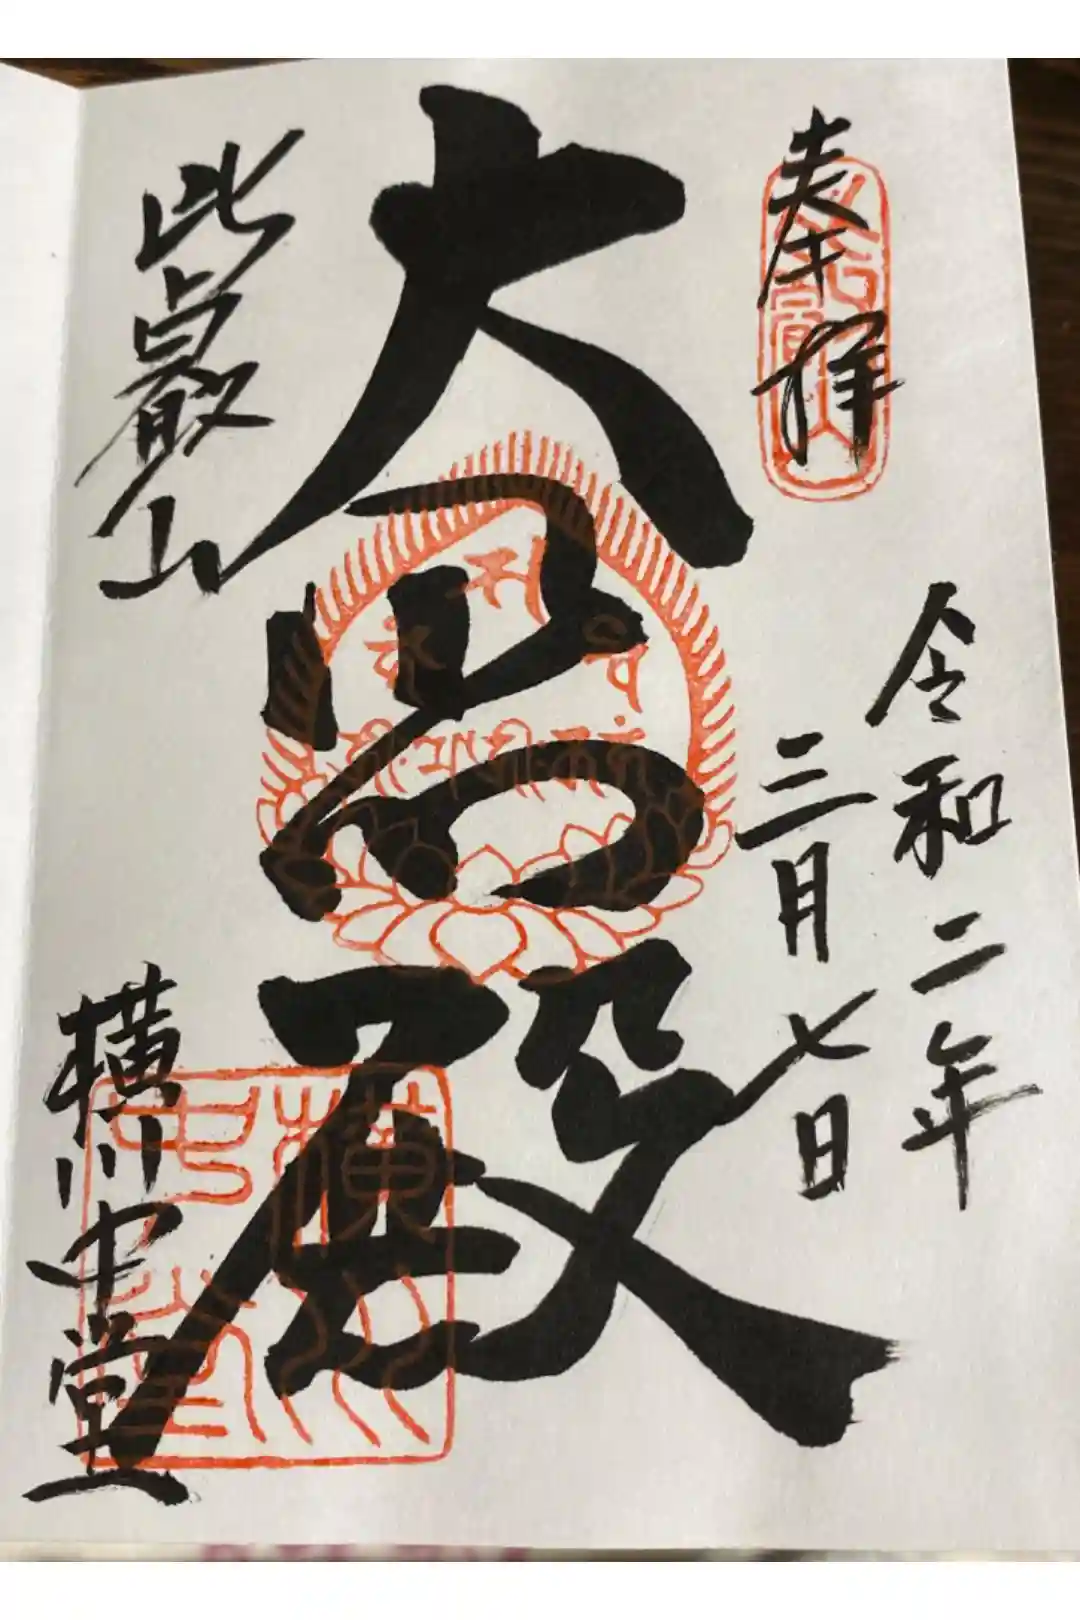 奉拝
令和二年
三月七日
大悲殿
比叡山
横川中堂
横川
中堂